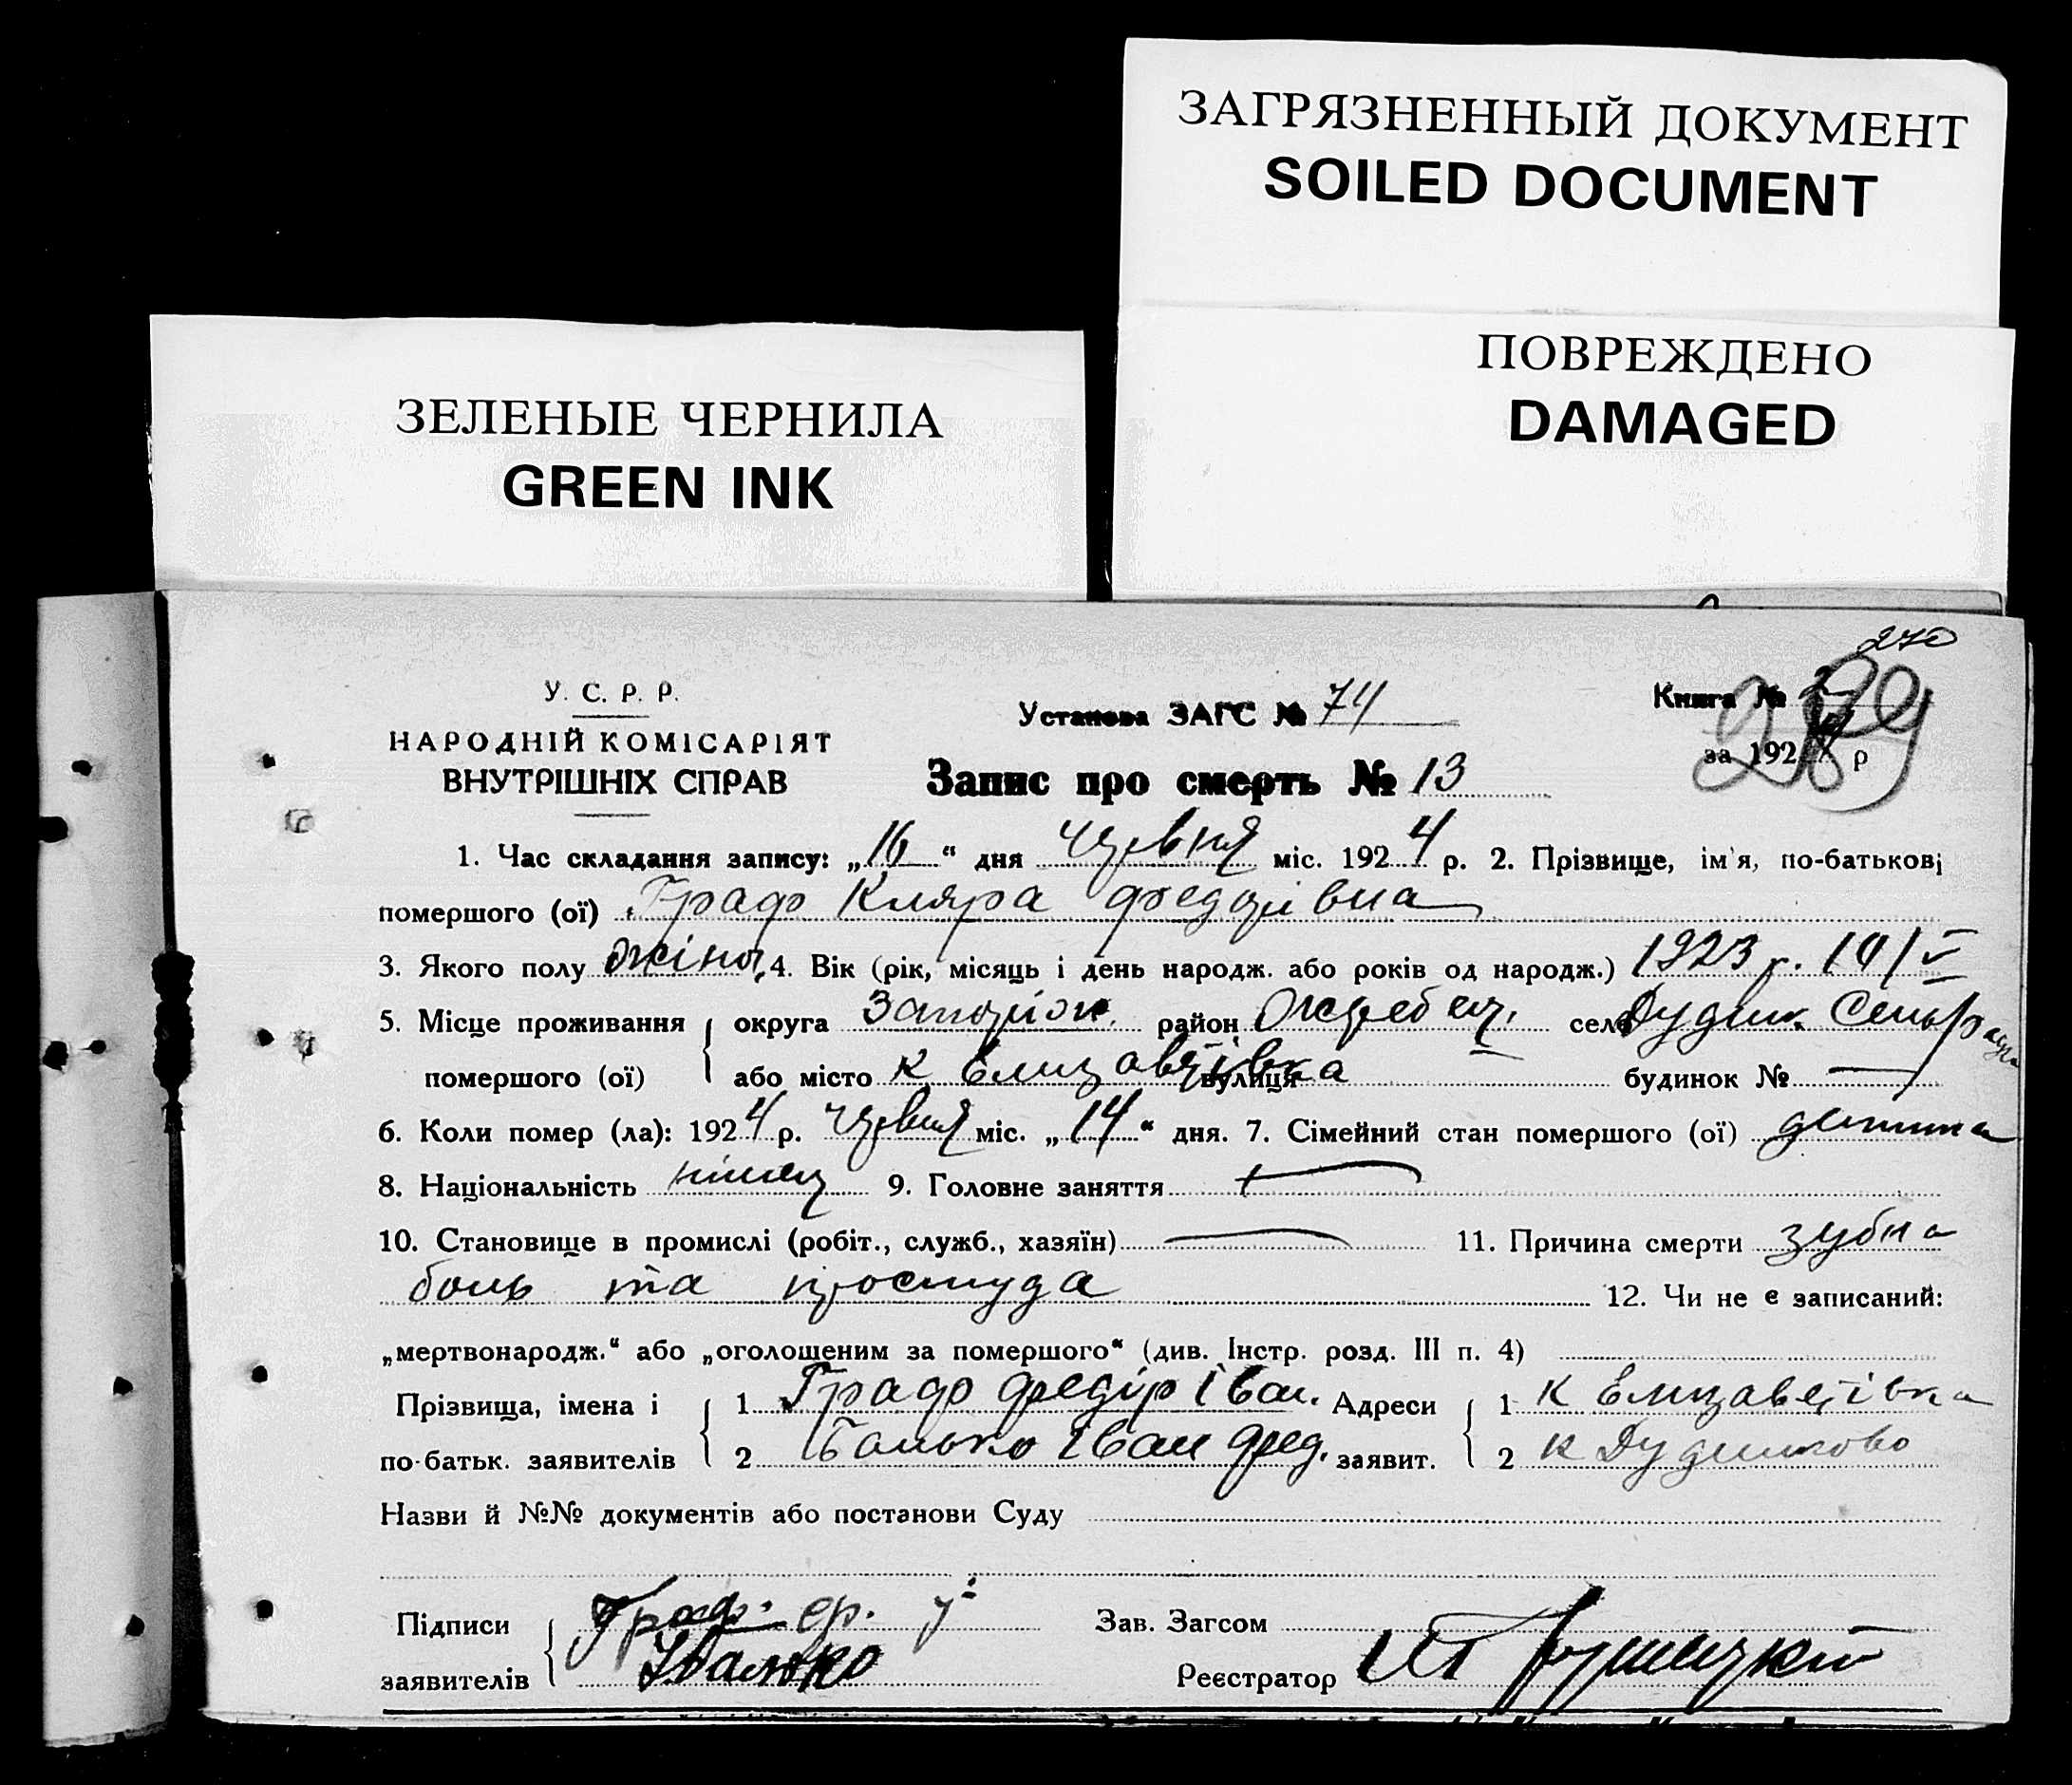 ЗАГРЯЗНЕННЫЙ ДОКУМЕНТ
SOILED DOCUMENT
ПОВРЕЖДЕНО
DAMAGED
ЗЕЛЕНЫЕ ЧЕРНИЛА
GREEN INK
270
289
У. С. Р. Р.
НАРОДНІЙ КОМІСАРІЯТ
ВНУТРІШНІХ СПРАВ
Установа ЗАГС № 74
Книга № 2
за 1924 р
Запис про смерть № 13
1. Час складання запису: „16“ дня червня міс. 1924 р. 2. Прізвище, ім'я, по-батькові
помершого (ої) Граф Кляра Федорівна
3. Якого полу жіноч. 4. Вік (рік, місяць і день народж. або років од народж.) 1923 р. 14/V
5. Місце проживання округа Запоріж. район Жеребец. село Дудник. Сельради
помершого (ої) або місто к Елизаветівка вулиця будинок № —
6. Коли помер (ла): 1924 р. червня міс. „14“ дня. 7. Сімейний стан помершого (ої) дитина
8. Національність німец 9. Головне заняття —
10. Становище в промислі (робіт., служб., хазяїн) — 11. Причина смерти зубна
боль та простуда 12. Чи не є записаний:
„мертвонародж.“ або „оголошеним за помершого“ (див. Інстр. розд. III п. 4)
Прізвища, імена і 1 Граф Федір Іван. Адреси 1 к Елизаветівка
по-батьк. заявителів 2 Балько Іван Фед. заявит. 2 к Дудниково
Назви й №№ документів або постанови Суду
Підписи Граф. Зав. Загсом
заявителів Ибалько Реєстратор